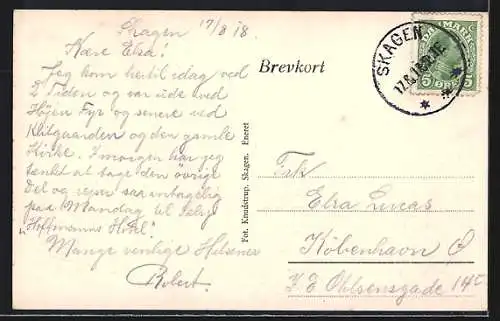 Skagen 17/8 18.
Kære Elsa!
Jeg kom hertil idag ved
2 Tiden og var ude ved
Højen Fyr og senere ved
Klitgaarden og den gamle
Kirke. I morgen har jeg
tænkt at tage den øvrige
Del og rejser saa antagelig
paa Mandag til
"Hoffmanns Hotel"
Mange venlige Hilsener
Robert.
Brevkort
Fot. Knudstrup. Skagen. Eneret
DANMARK
5 ØRE 5
SKAGEN
17.8.18
Frk
Elsa Lucas
København Ø
J. E. Ohlsensgade 14